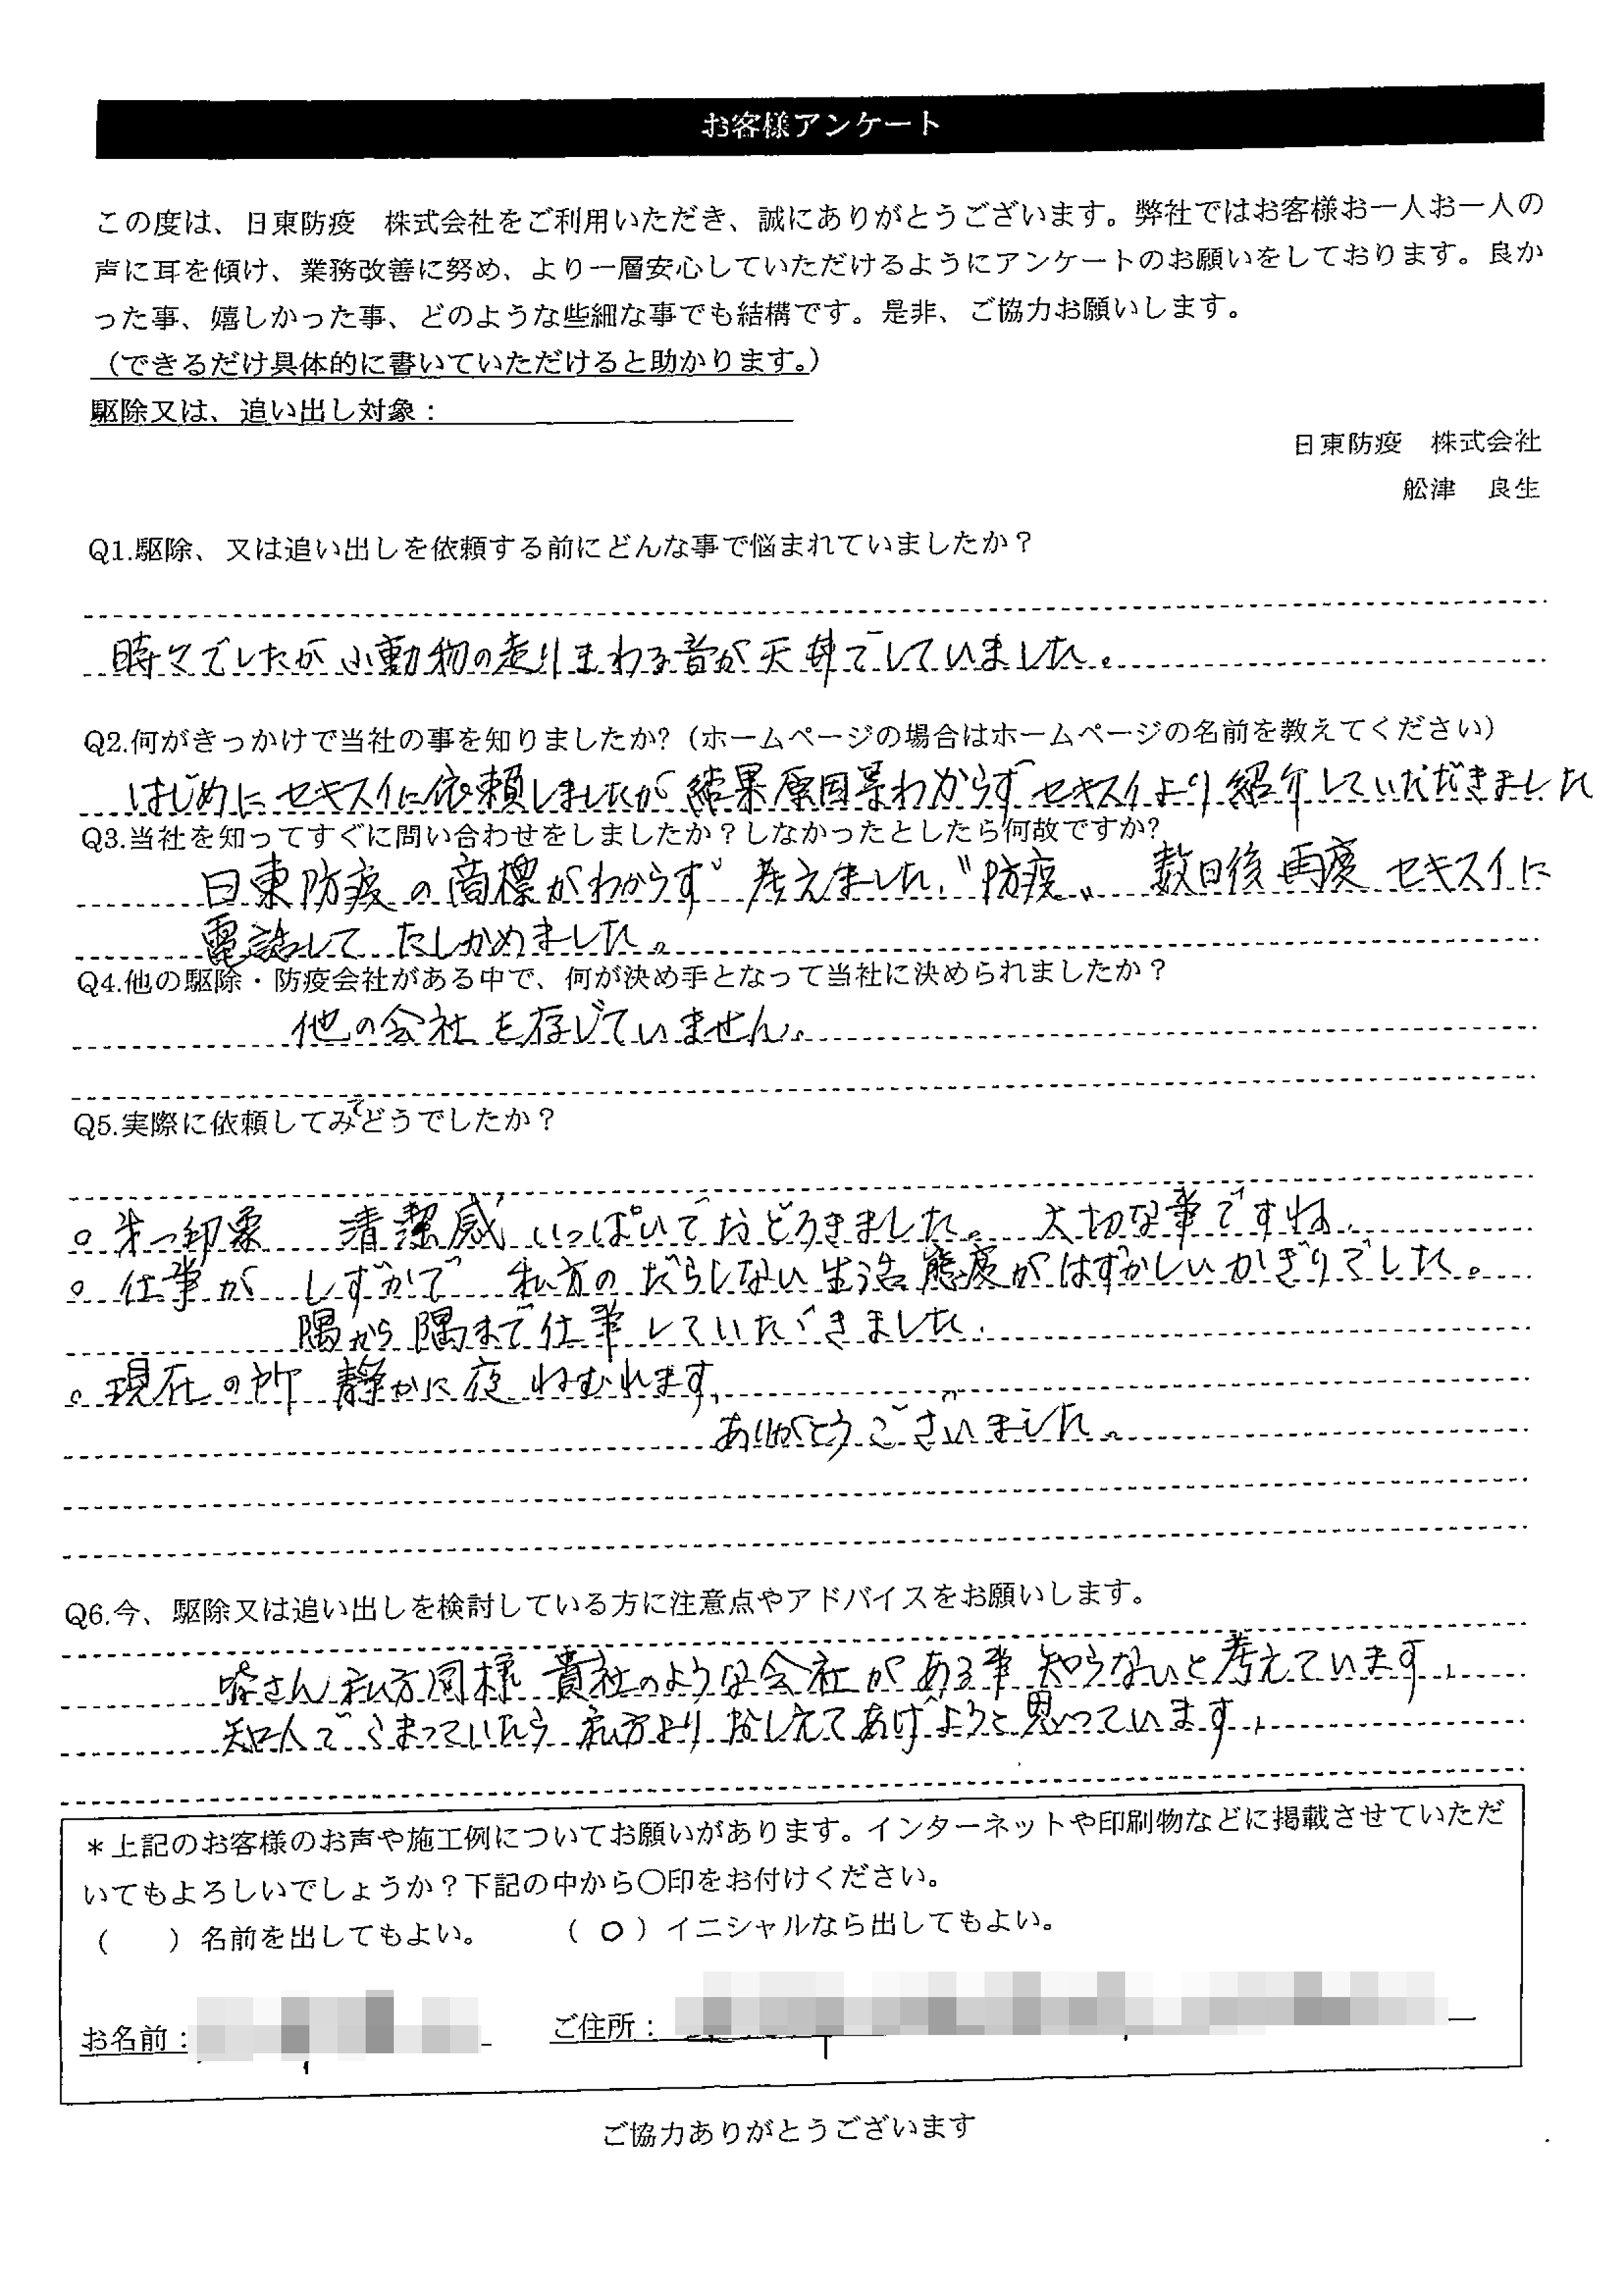 お客様アンケート
この度は、日東防疫　株式会社をご利用いただき、誠にありがとうございます。弊社ではお客様お一人お一人の
声に耳を傾け、業務改善に努め、より一層安心していただけるようにアンケートのお願いをしております。良か
った事、嬉しかった事、どのような些細な事でも結構です。是非、ご協力お願いします。
（できるだけ具体的に書いていただけると助かります。）
駆除又は、追い出し対象：
日東防疫　株式会社
舩津　良生
Q1.駆除、又は追い出しを依頼する前にどんな事で悩まれていましたか？
時々でしたが小動物の走りまわる音が天井でしていました。
Q2.何がきっかけで当社の事を知りましたか?（ホームページの場合はホームページの名前を教えてください）
はじめにセキスイに依頼しましたが結果原因等わからずセキスイより紹介していただきました
Q3.当社を知ってすぐに問い合わせをしましたか？しなかったとしたら何故ですか?
日東防疫の商標がわからず考えました。〝防疫〟 数日後再度セキスイに
電話してたしかめました。
Q4.他の駆除・防疫会社がある中で、何が決め手となって当社に決められましたか？
他の会社を存じていません。
Q5.実際に依頼してみてどうでしたか？
○ 第一印象　清潔感いっぱいでおどろきました。大切な事ですね。
○ 仕事がしずかで私方のだらしない生活態度がはずかしいかぎりでした。
隅から隅まで仕事していただきました。
○ 現在の所静かに夜ねむれます。
ありがとうございました。
Q6.今、駆除又は追い出しを検討している方に注意点やアドバイスをお願いします。
皆さん私方同様貴社のような会社がある事知らないと考えています。
知人でこまっていたら私方よりおしえてあげようと思っています。
＊上記のお客様のお声や施工例についてお願いがあります。インターネットや印刷物などに掲載させていただ
いてもよろしいでしょうか？下記の中から〇印をお付けください。
（　　）名前を出してもよい。　　（ ○ ）イニシャルなら出してもよい。
お名前：　　ご住所：
ご協力ありがとうございます